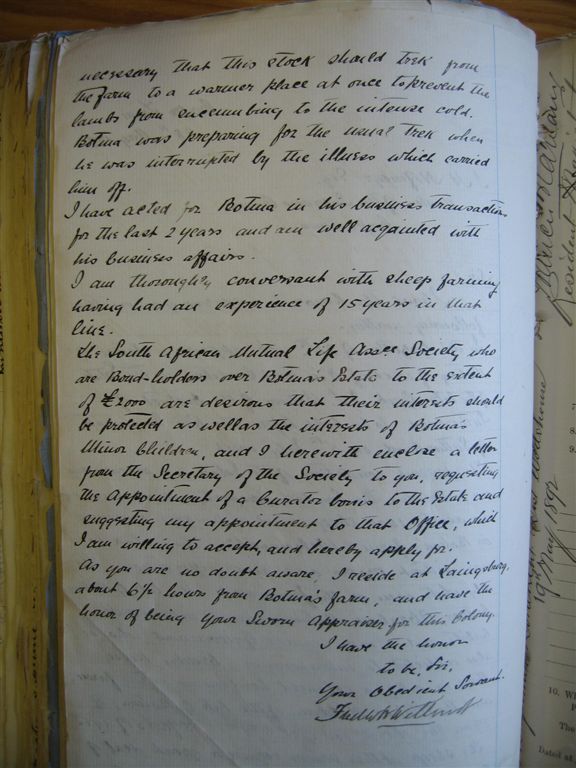 necessary that this stock should trek from
the farm to a warmer place at once to prevent the
lambs from succumbing to the intense cold.
Botma was preparing for the usual trek when
he was interrupted by the illness which carried
him off.
I have acted for Botma in his business transactions
for the last 2 years and am well acquainted with
his business affairs.
I am thoroughly conversant with sheep farming
having had an experience of 15 years in that
line.
The South African Mutual Life Assce Society who
are Bond-holders over Botma's Estate to the extent
of £2000 are desirous that their interests should
be protected as well as the interests of Botma's
Minor Children, and I herewith enclose a letter
from the Secretary of the Society to you, requesting
the Appointment of a Curator bonis to the Estate and
suggesting my appointment to that Office, which
I am willing to accept, and hereby apply for.
As you are no doubt aware, I reside at Laingsburg,
about 6½ hours from Botma's farm, and have the
honor of being your Sworn Appraiser for this Colony.
I have the honor
to be, Sir,
Your Obedient Servant.
Resident
19th May 1892
7.
8.
9.
10. W
The
Dated at